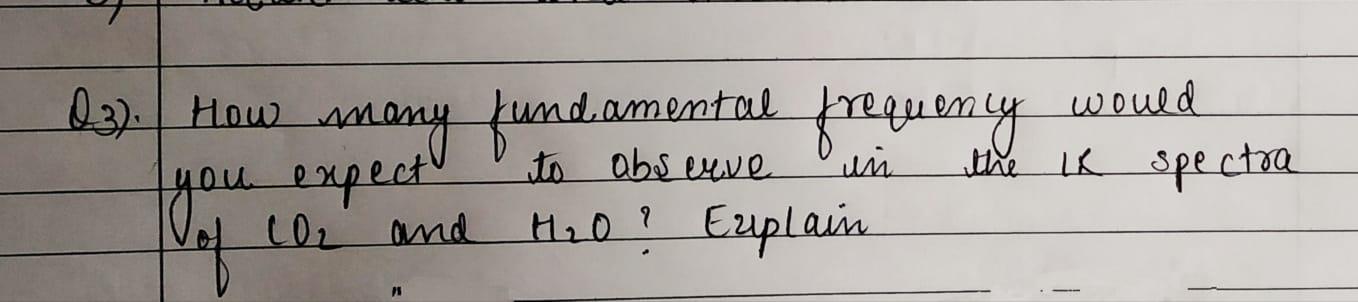 Q3). How many fundamental frequency would
you expect to observe in the IR spectra
of CO2 and H2O? Explain
"